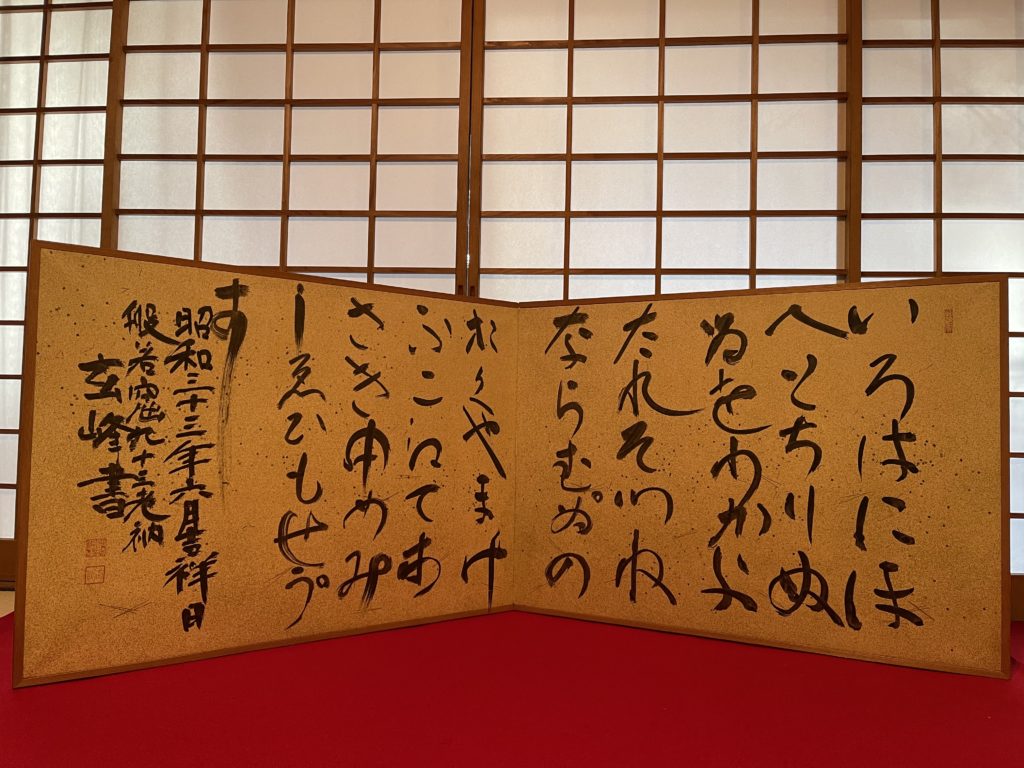 いろはにほ
へとちりぬ
るをわかよ
たれそつね
ならむゐの
おくやまけ
ふこえてあ
さきゆめみ
しゑひもせう
す
昭和三十三年六月吉祥日
般若窟九十三老衲
玄峰書